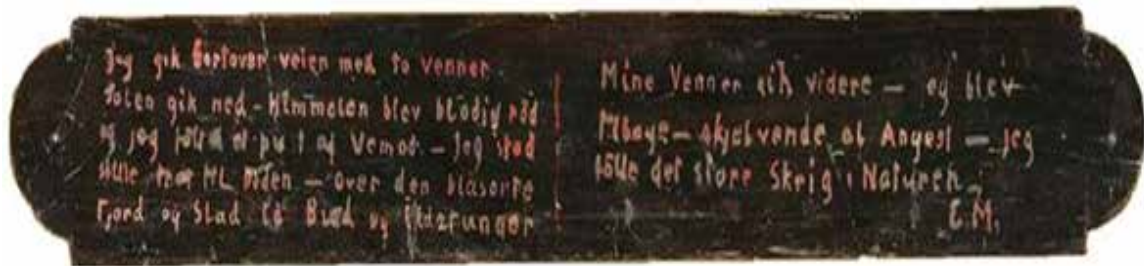 Jeg gik bortover veien med to venner
Solen gik ned – Himmelen blev blodig rød
og jeg følte et pust af Vemod – Jeg stod
stille Døden – over den blåsorte
Fjord og Stad lå Blod og Ildtunger
Mine Venner gik videre – og blev
– skjælvende af Angest – jeg
følte det store Skrig i Naturen
E.M.